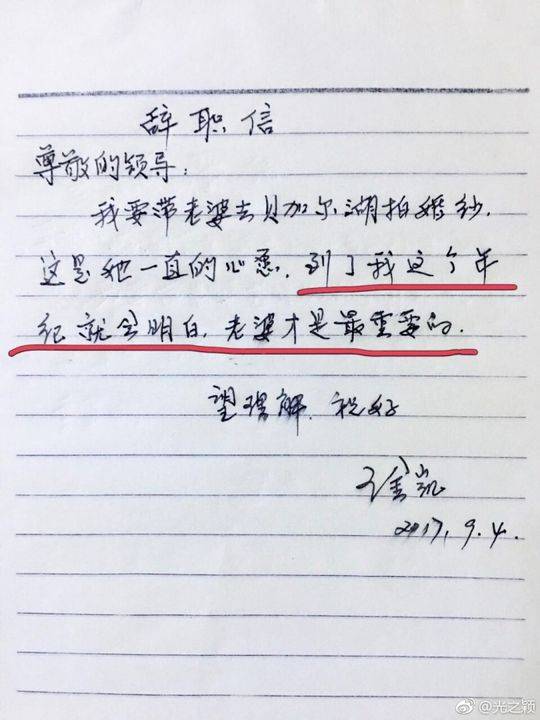 辞职信
尊敬的领导：
我要带老婆去贝加尔湖拍婚纱，
这是她一直的心愿，到了我这个年
纪就会明白，老婆才是最重要的。
望理解，祝好
凯
2017.9.4.
@光之颖